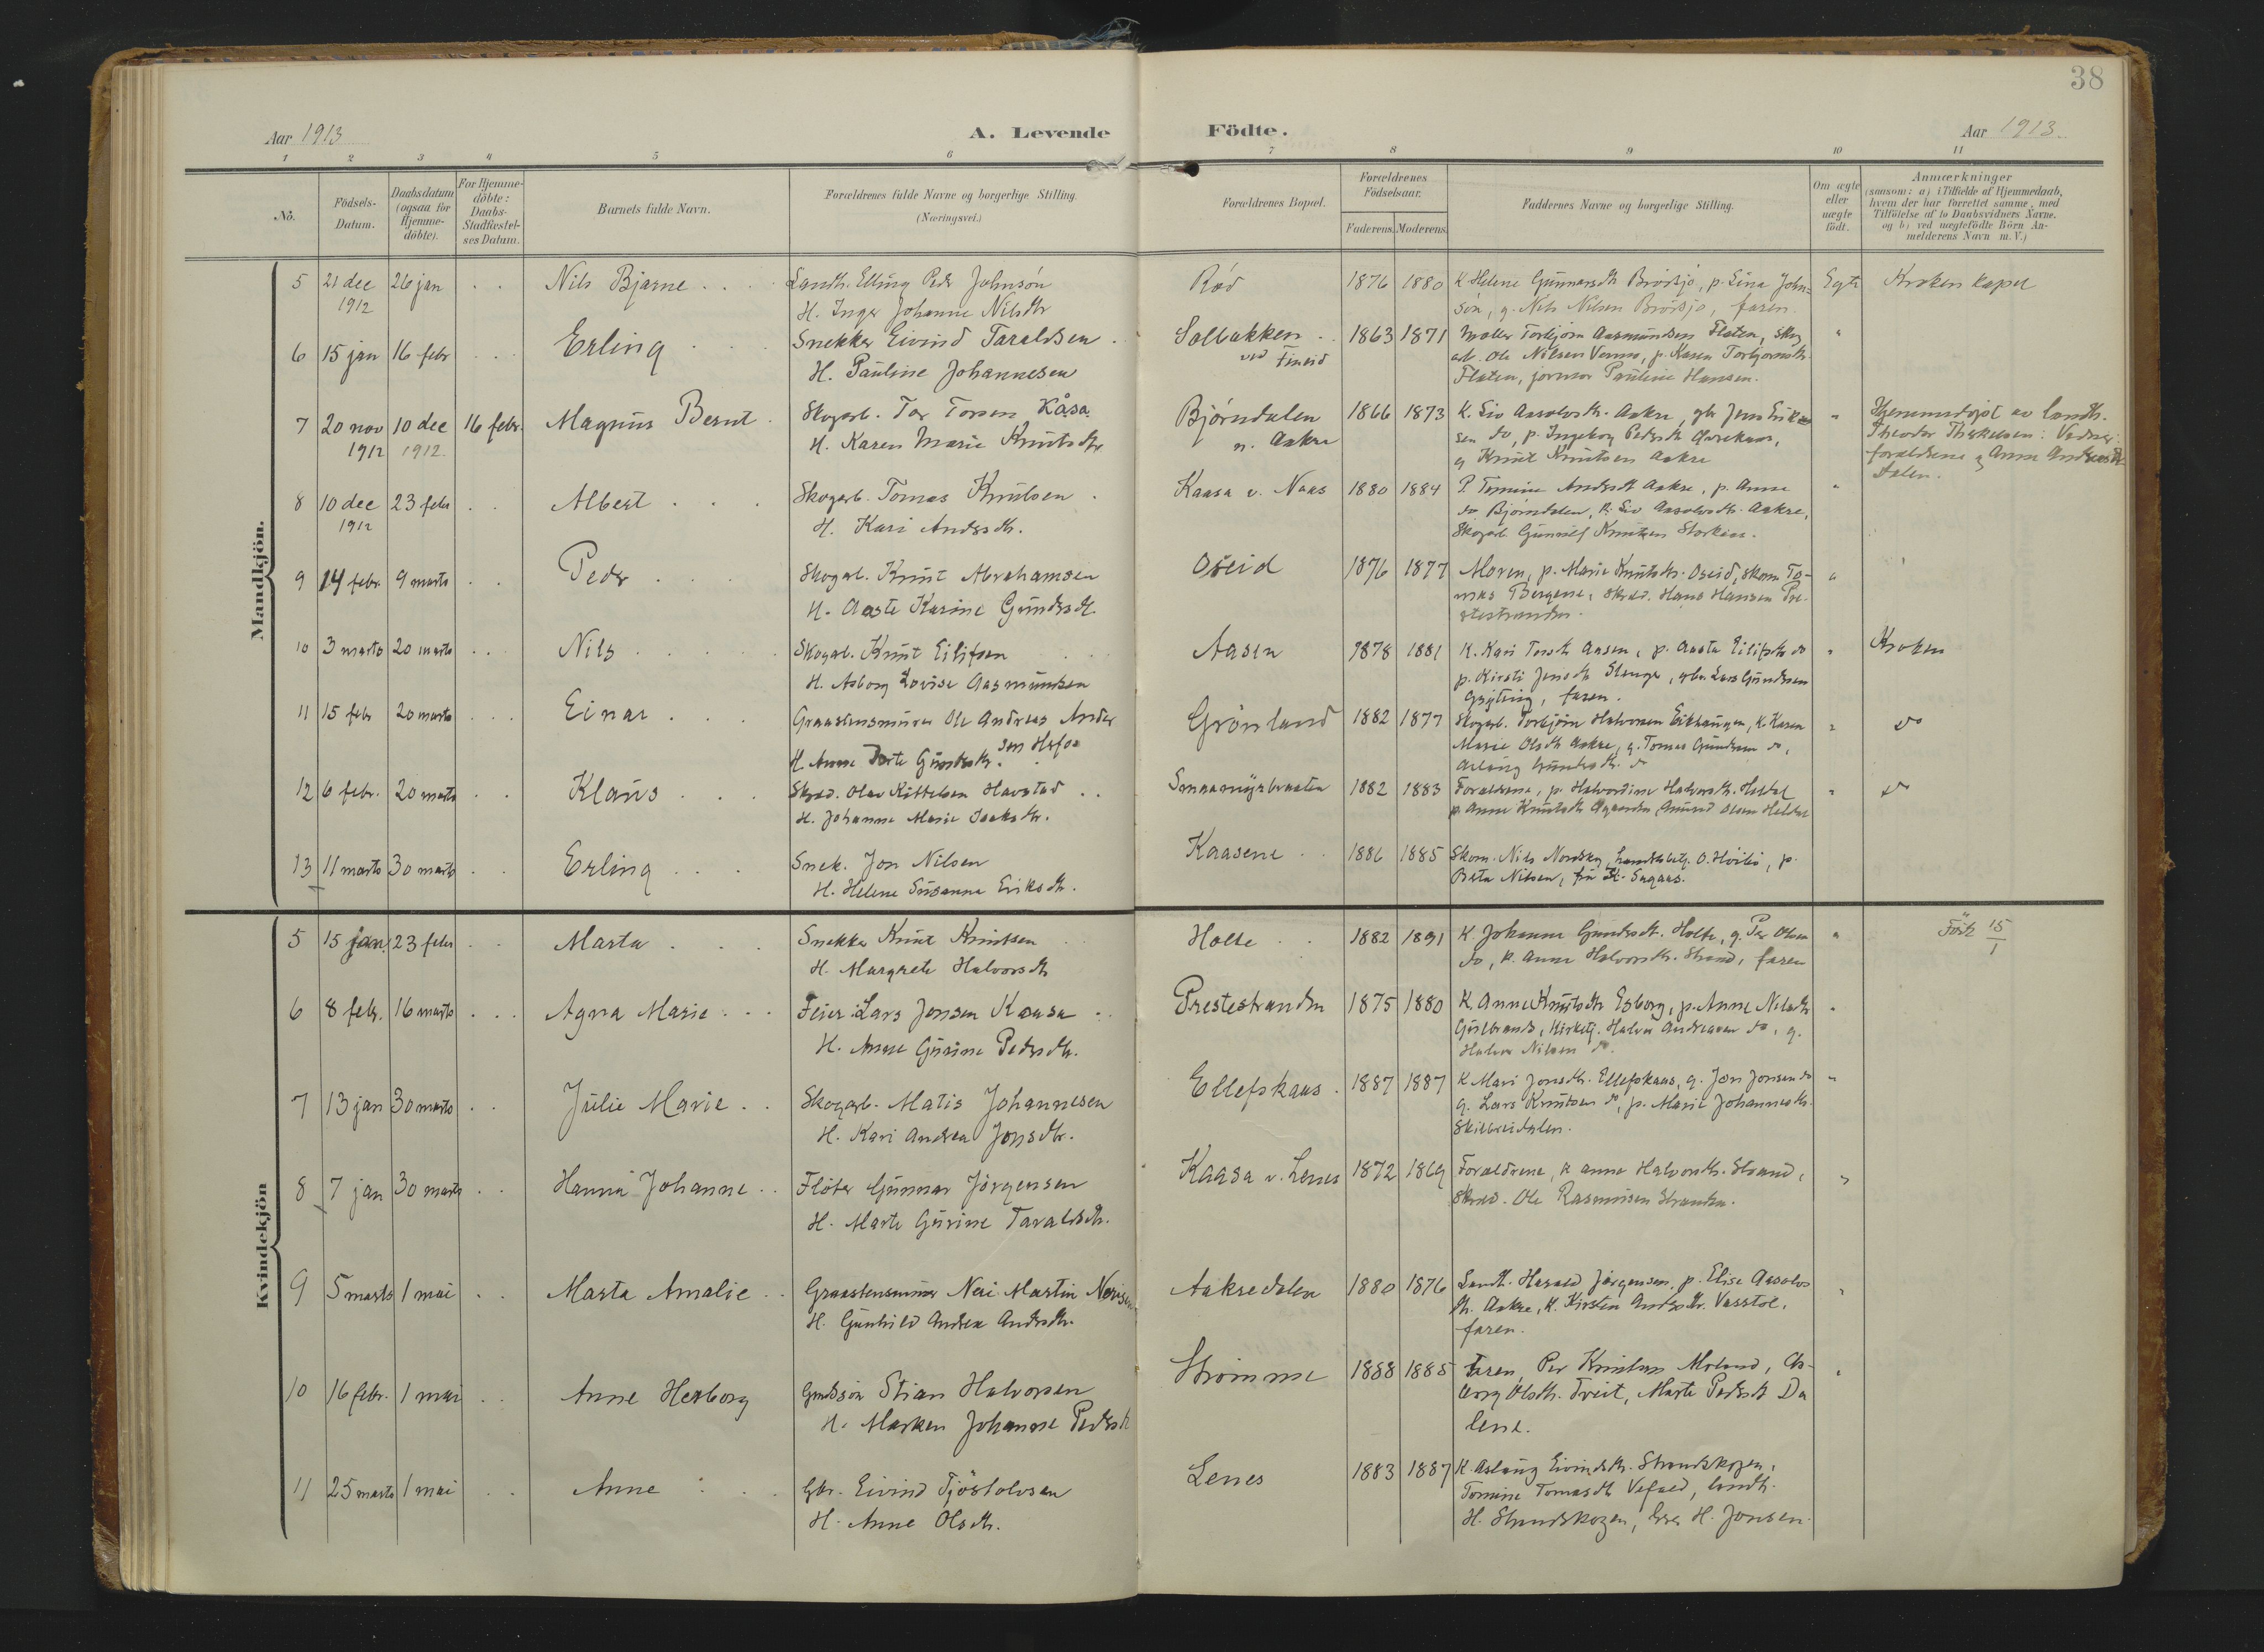 38
Aar 1913
A. Levende Födte.
Aar 1913.
1 2 3 4 5 6 7 8 9 10 11
No.
Födsels-Datum.
Daabsdatum (ogsaa for Hjemme-döbte).
For Hjemme-döbte: Daabs-Stadfæstel-ses Datum.
Barnets fulde Navn.
Forældrenes fulde Navne og borgerlige Stilling. (Næringsvei.)
Forældrenes Bopæl.
Forældrenes Födselsaar.
Faderens. Moderens.
Faddernes Navne og borgerlige Stilling.
Om ægte eller uægte födt.
Anmærkninger
(saasom: a) i Tilfælde af Hjemmedaab,
hvem der har forrettet samme, med
Tilföielse af to Daabsvidners Navne.
og b) ved uægtefödte Börn An-
melderens Navn m. V.)
Mandkjön.
5 21 dec 1912 26 jan Nils Bjarne
Landh. Elling Peder Johnsön
H. Inger Johanne Nilsdtr
Röd 1876 1880
K. Helene Gunnarsdtr Brösjö, p. Lina John-
sön, g. Nils Nilsen Brösjö, faren
Egte Kroken kapel
6 15 jan 16 febr Erling
Snekker Eivind Taraldsen
H. Pauline Johannesen
Solbakken ved Fineid 1863 1871
Möller Torbjörn Aasmundsen Flaten, skog
arb. Ole Nilsen, p. Karen Torbjörnsdtr.
Flaten, jormor Pauline Hansen.
7 20 nov 1912 10 dec 1912. 16 febr. Magnus Bernt
Skogarb. Tor Torsen Kåsa
H. Karen Marie Knutsdtr
Björndalen n. Aakre 1866 1873
K. Siv Aasolvsdtr. Aakre, gbr Jens Erik
sen do, p. Ingeborg Pedersdtr
g Knut Knutsen Aakre
Hjemmedöpt av landh.
Theodor Therkelsen: Vidner:
foreldrene og Anne Andersdtr
Dalen.
8 10 dec 1912 23 febr Albert
Skogarb. Tomas Knutsen
H. Kari Andersdtr.
Kaasa v. Naas 1880 1884
P. Tomine Andersdtr Aakre, p. Anne
do Björndalen, K. Siv Aasolvsdtr. Aakre,
Skogarb Gunnulf Knutsen
9 14 febr. 9 marts Peder
Skogarb. Knut Abrahamsen
H. Aaste Karine Gundersdtr.
Oseid 1876 1877
Moren, p. Marie Knutsdtr. Oseid, skom To-
mas Bergene, skred. Hans Hansen Pre-
stestranden.
10 3 marts 20 marts Nils
Skogarb. Knut Eilifsen
H. Asborg Lovise Aasmundsen
Aasen 1878 1881
K. Kari Torsdtr Aasen, p. Aaste Eilifsdtr do
p. Kirsti Jensdtr Stange, gbr. Lars Gundersen
faren.
Kroken
11 15 febr 20 marts Einar
Graastensmurer Ole Andreas Ander
sen Hafos
H. Anne Dorte Gundersdtr.
Grönland 1882 1877
Skogarb. Torbjörn Halvorsen Eikhaugen, K. Karen
Marie Olsdtr Aakre, g. Tomas Gundersen do,
Aslaug Gundersdtr. do
do
12 6 febr. 20 marts Klaus
Skred. Olav Kittelsen Havstad
H. Johanne Marie Isaksdtr.
Smaamyrbraaten 1882 1883
Forældrene, p. Halvordine Halvorsdtr. Heldal
p. Anne Knutsdtr, Amund Olsen Heldal
do
13 11 marts 30 marts Erling
Snek. Jon Nilsen
H. Helene Susanne Eriksdtr.
Kaasene 1886 1885
Skom. Nils Nordskog, handelsbetj. O. Höibö, p.
Berta Nilsen, fru
Kvindekjön
5 15 jan. 23 febr Marta
Snekker Knut Knutsen
H. Margrete Halvorsdtr
Holte 1882 1891
K. Johanne Gundersdtr. Holte, g. Per Olsen
do, p. Anne Halvorsdtr. Strand, faren
Födt 15/1
6 8 febr. 16 marts Agna Marie
Feier Lars Jensen Kaasa
H. Anne Gurine Pedersdtr.
Prestestranden 1875 1880
K. Anne Knutsdtr Esborg, p. Anne Nilsdtr
Gulbrands, kirketj. Halvor Andreasen do, g.
Halvor Nilsen do.
7 13 jan 30 marts Julie Marie
Skogarb. Matis Johannesen
H. Kari Andrea Jonsdtr.
Ellefskaas 1887 1887
K. Mari Jonsdtr. Ellefskaas, g. Jon Jonsen do
g. Lars Knutsen do, p. Marie Johannesdtr.
Skilbreidalen.
8 7 jan 30 marts Hanna Johanne
Flöter Gunnar Jörgensen
H. Marte Gurine Taraldsdtr.
Kaasa v. Lenes 1872 1869
Foreldrene, K Anne Halvorsdtr. Strand,
Skred. Ole Rasmussen Stranden.
9 5 marts 1 mai Marta Amalie
Graastensmurer Neri Martin Nerisen
H. Gunhild Andrea Andersdtr.
Aakredalen 1880 1876
Landh. Harald Jörgensen, p. Elise Aasolvs
dtr. Aakre, K. Kirsten Andersdtr. Vasstöl,
faren.
10 16 febr. 1 mai Anne Herborg
Gmdssön Stian Halvorsen
H. Marken Johanne Pedersdtr
Strömme 1888 1885
Faren, Per Knutsen Moland, As-
borg Olsdtr. Tveit, Marte Pedersdtr Da
lene.
11 25 marts 1 mai Anne
Gbr. Eivind Tjöstolvsen
H. Anne Olsdtr.
Lenes 1883 1887
K. Aslaug Eivindsdtr. Strandskogen,
Tomine Tomasdtr Vefald, landh.
H. Strandskogen, H. Jonsen.